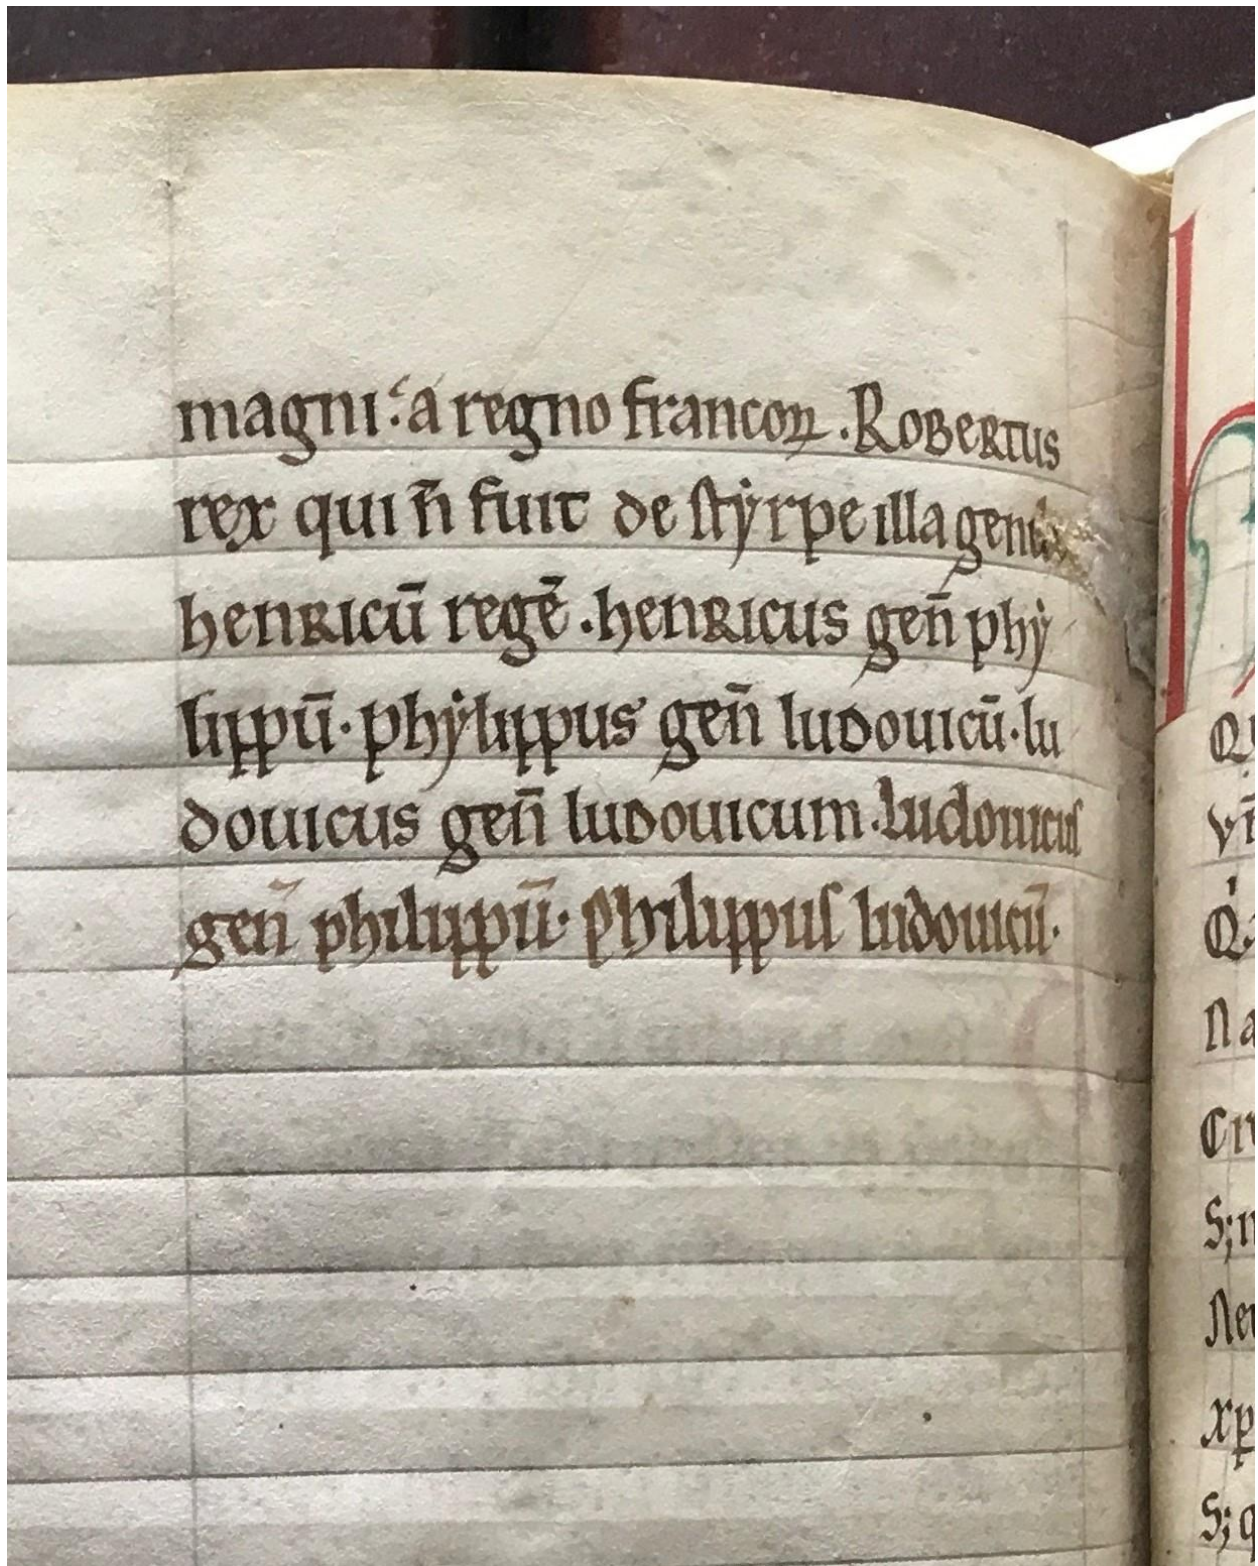 magni: a regno francoꝝ. Robertus
rex qui n̄ fuit de styrpe illa
henricū regē. henricus gen̄ phẏ
lippū. phẏlippus gen̄ ludouicū. lu
douicus gen̄ ludouicum. Ludouicus
gen̄ philippū. Philippus ludouicū.